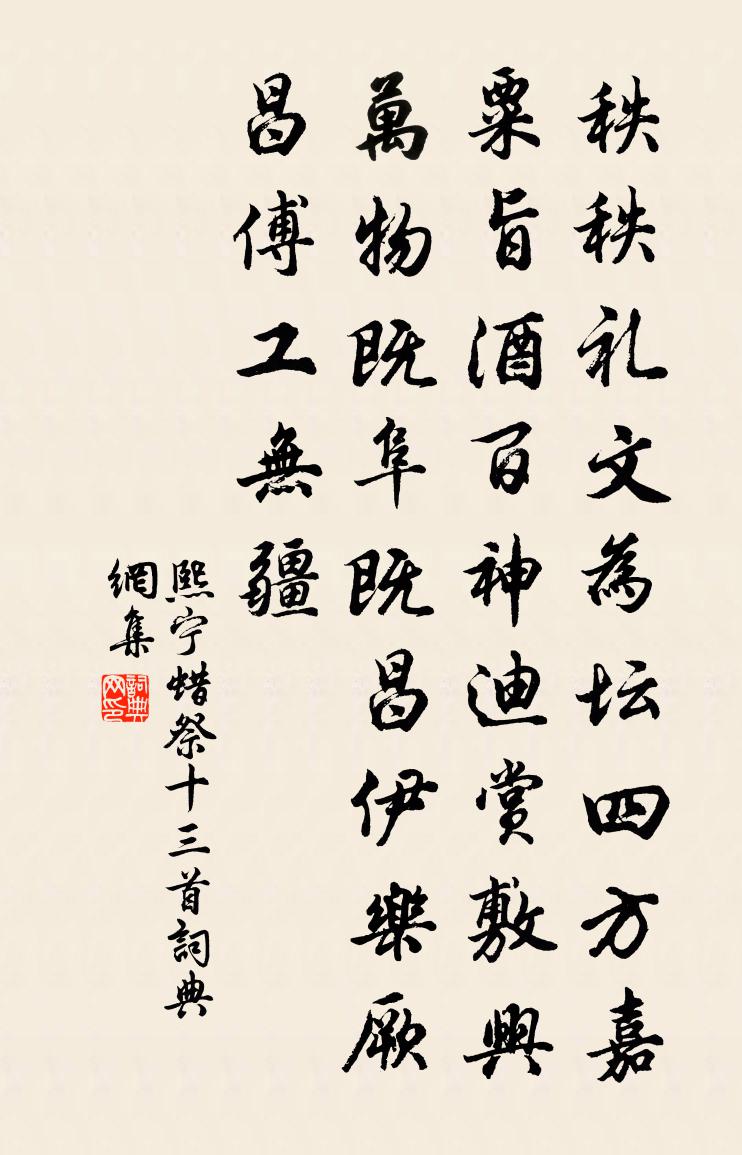 秩秩礼文為坛四方嘉
粟旨酒百神迪赏敷興
萬物既阜既昌伊樂厥
昌傅工無疆
熙宁蜡祭十三首詞典
網集
詞典
网印